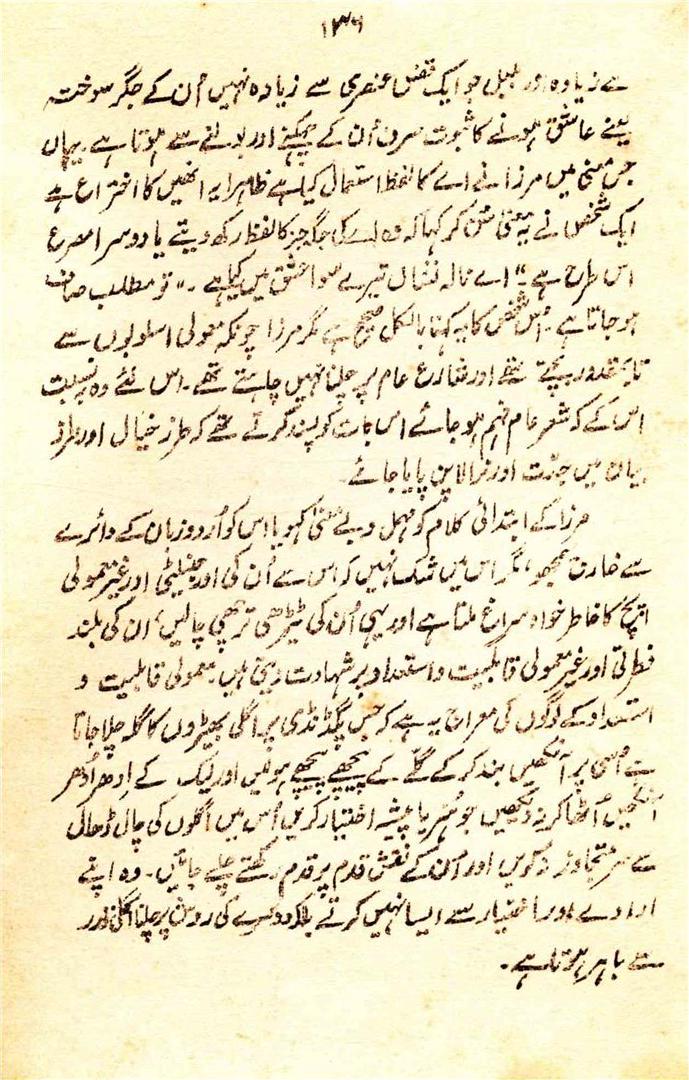 ۱۳۶
سے زیادہ اور بلبل جو ایک قفس عنصری سے زیادہ نہیں اُن کے جگر سوختہ
یعنے عاشق ہونے کا ثبوت صرف اُن کے چہکنے اور بولنے سے ہوتا ہے۔ یہاں
جس معنی میں مرزا نے اے کا لفظ استعمال کیا ہے ظاہرا یہ انھیں کا اختراع ہے
ایک شخص نے یہ معنی سُن کر کہا کہ وہ اے کی جگہ جز کا لفظ رکھ دیتے یا دوسرا مصرع
اس طرح ہے "اے نالہ نشاں تیرے سوا عشق میں کیا ہے۔" تو مطلب صاف
ہو جاتا ہے۔ اُس شخص کا یہ کہنا بالکل صحیح ہے مگر مرزا چونکہ معمولی اسلوبوں سے
تا بمقدور بچتے تھے اور شارع عام پر چلنا نہیں چاہتے تھے۔ اس لئے وہ بہ نسبت
اس کے کہ شعر عام فہم ہو جائے اس بات کو پسند کرتے تھے کہ طرز خیال اور طرز
بیان میں جدّت اور نرالا پن پایا جائے
مرزا کے ابتدائی کلام کو مہمل و بے معنی کہو یا اس کو اُردو زبان کے دائرے
سے خارج سمجھو، مگر اس میں شک نہیں کہ اس سے اُن کی اورجنیلیٹی اور غیر معمولی
اپج کا خاطر خواہ سراغ ملتا ہے اور یہی اُن کی ٹیڑھی ترچھی چالیں، ان کی بلند
فطرتی اور غیر معمولی قابلیت و استعداد پر شہادت دیتی ہیں۔ معمولی قابلیت و
استعداد کے لوگوں کی معراج یہ ہے کہ جس پگڈنڈی پر اگلی بھیڑوں کا گلہ چلا جاتا
ہے اسی پر آنکھیں بند کر کے گلّے کے پیچھے پیچھے ہو لیں اور لیک کے اِدھر اُدھر
آنکھیں اُٹھا کر نہ دیکھیں جو ہنر یا پیشہ اختیار کریں اُس میں اگلوں کی چال ڈھال
سے سر متجاوز نہ کریں اور اُن کے نقش قدم پر قدم رکھتے چلے جائیں۔ وہ اپنے
ارادے اور اختیار سے ایسا نہیں کرتے بلکہ دوسرے کی روش پر چلنا انکی قدرت
سے باہر ہوتا ہے۔